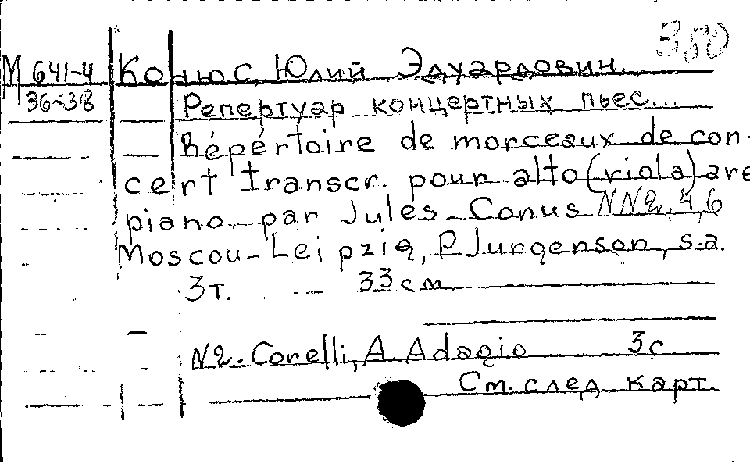 350
М 641-4 Конюс, Юлий Эдуардович.
36-38 Репертуар концертных пьес...
Répértoire de morceaux de con-
cert transcr. pour alto (viola) ave
piano par Jules Conus NN2, 4, 6
Moscou-Leipzig, P. Jurgenson, s.a.
3т. - 33 см
N2. Corelli, A. Adagio 3с
См. след. карт.